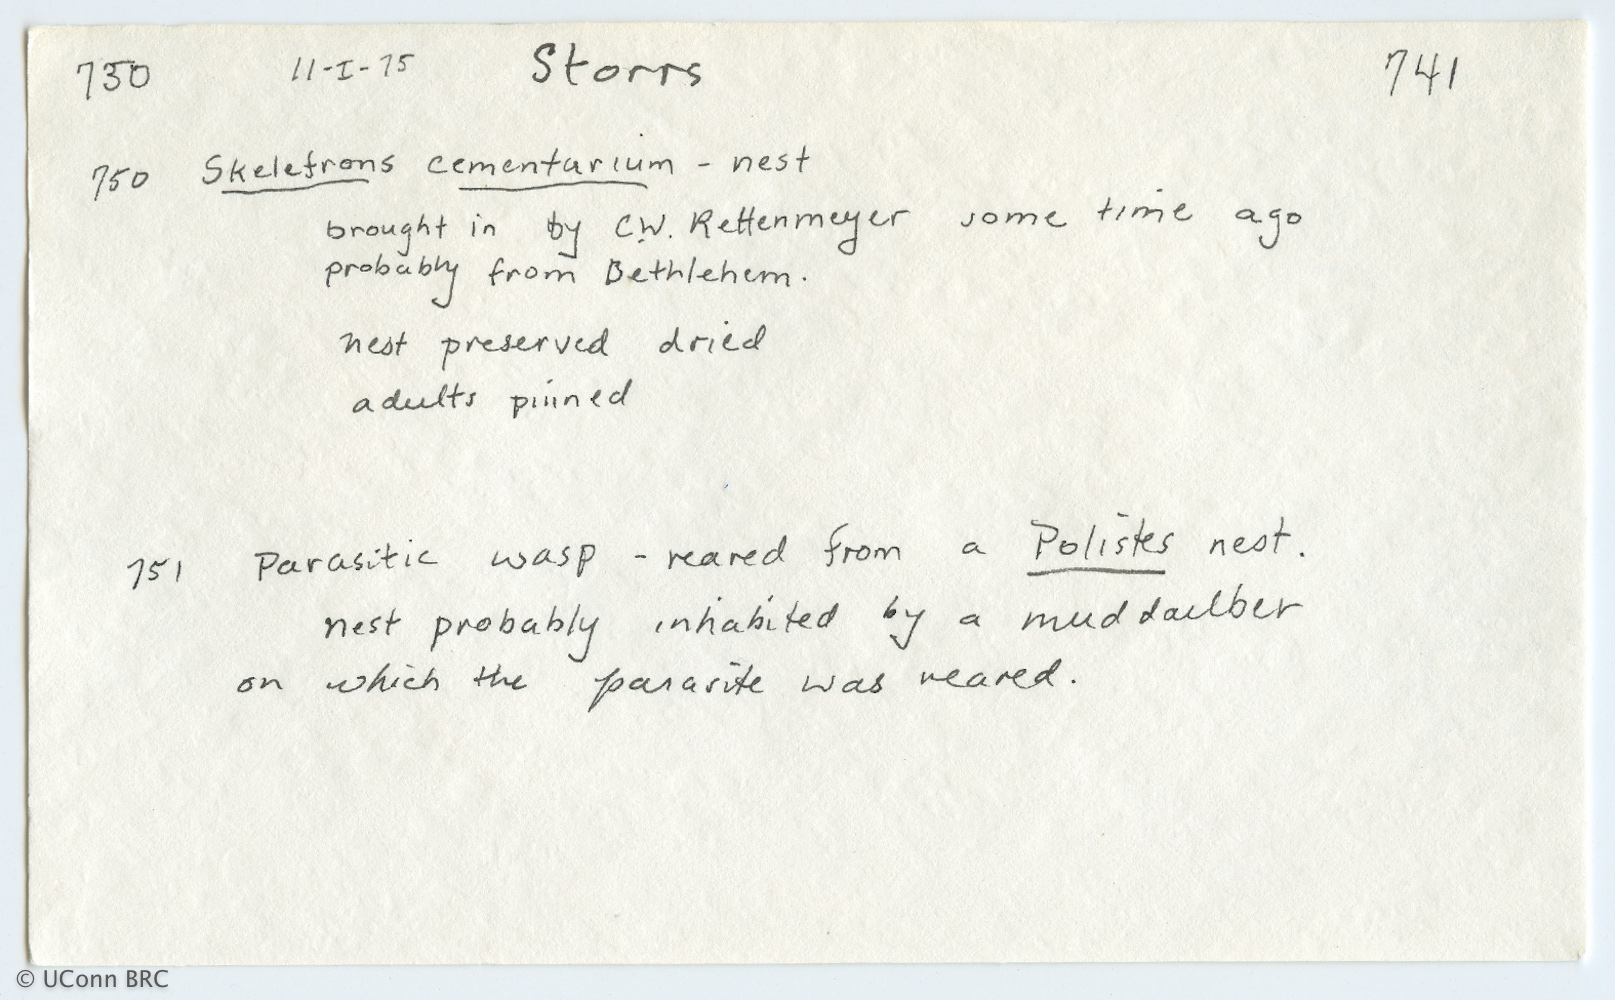 750 11-I-75 Storrs 741
750 Skelefrons cementarium - nest
brought in by C.W. Rettenmeyer some time ago
probably from Bethlehem.
nest preserved dried
adults pinned
751 Parasitic wasp - reared from a Polistes nest.
nest probably inhabited by a mud daulber
on which the parasite was reared.
© UConn BRC